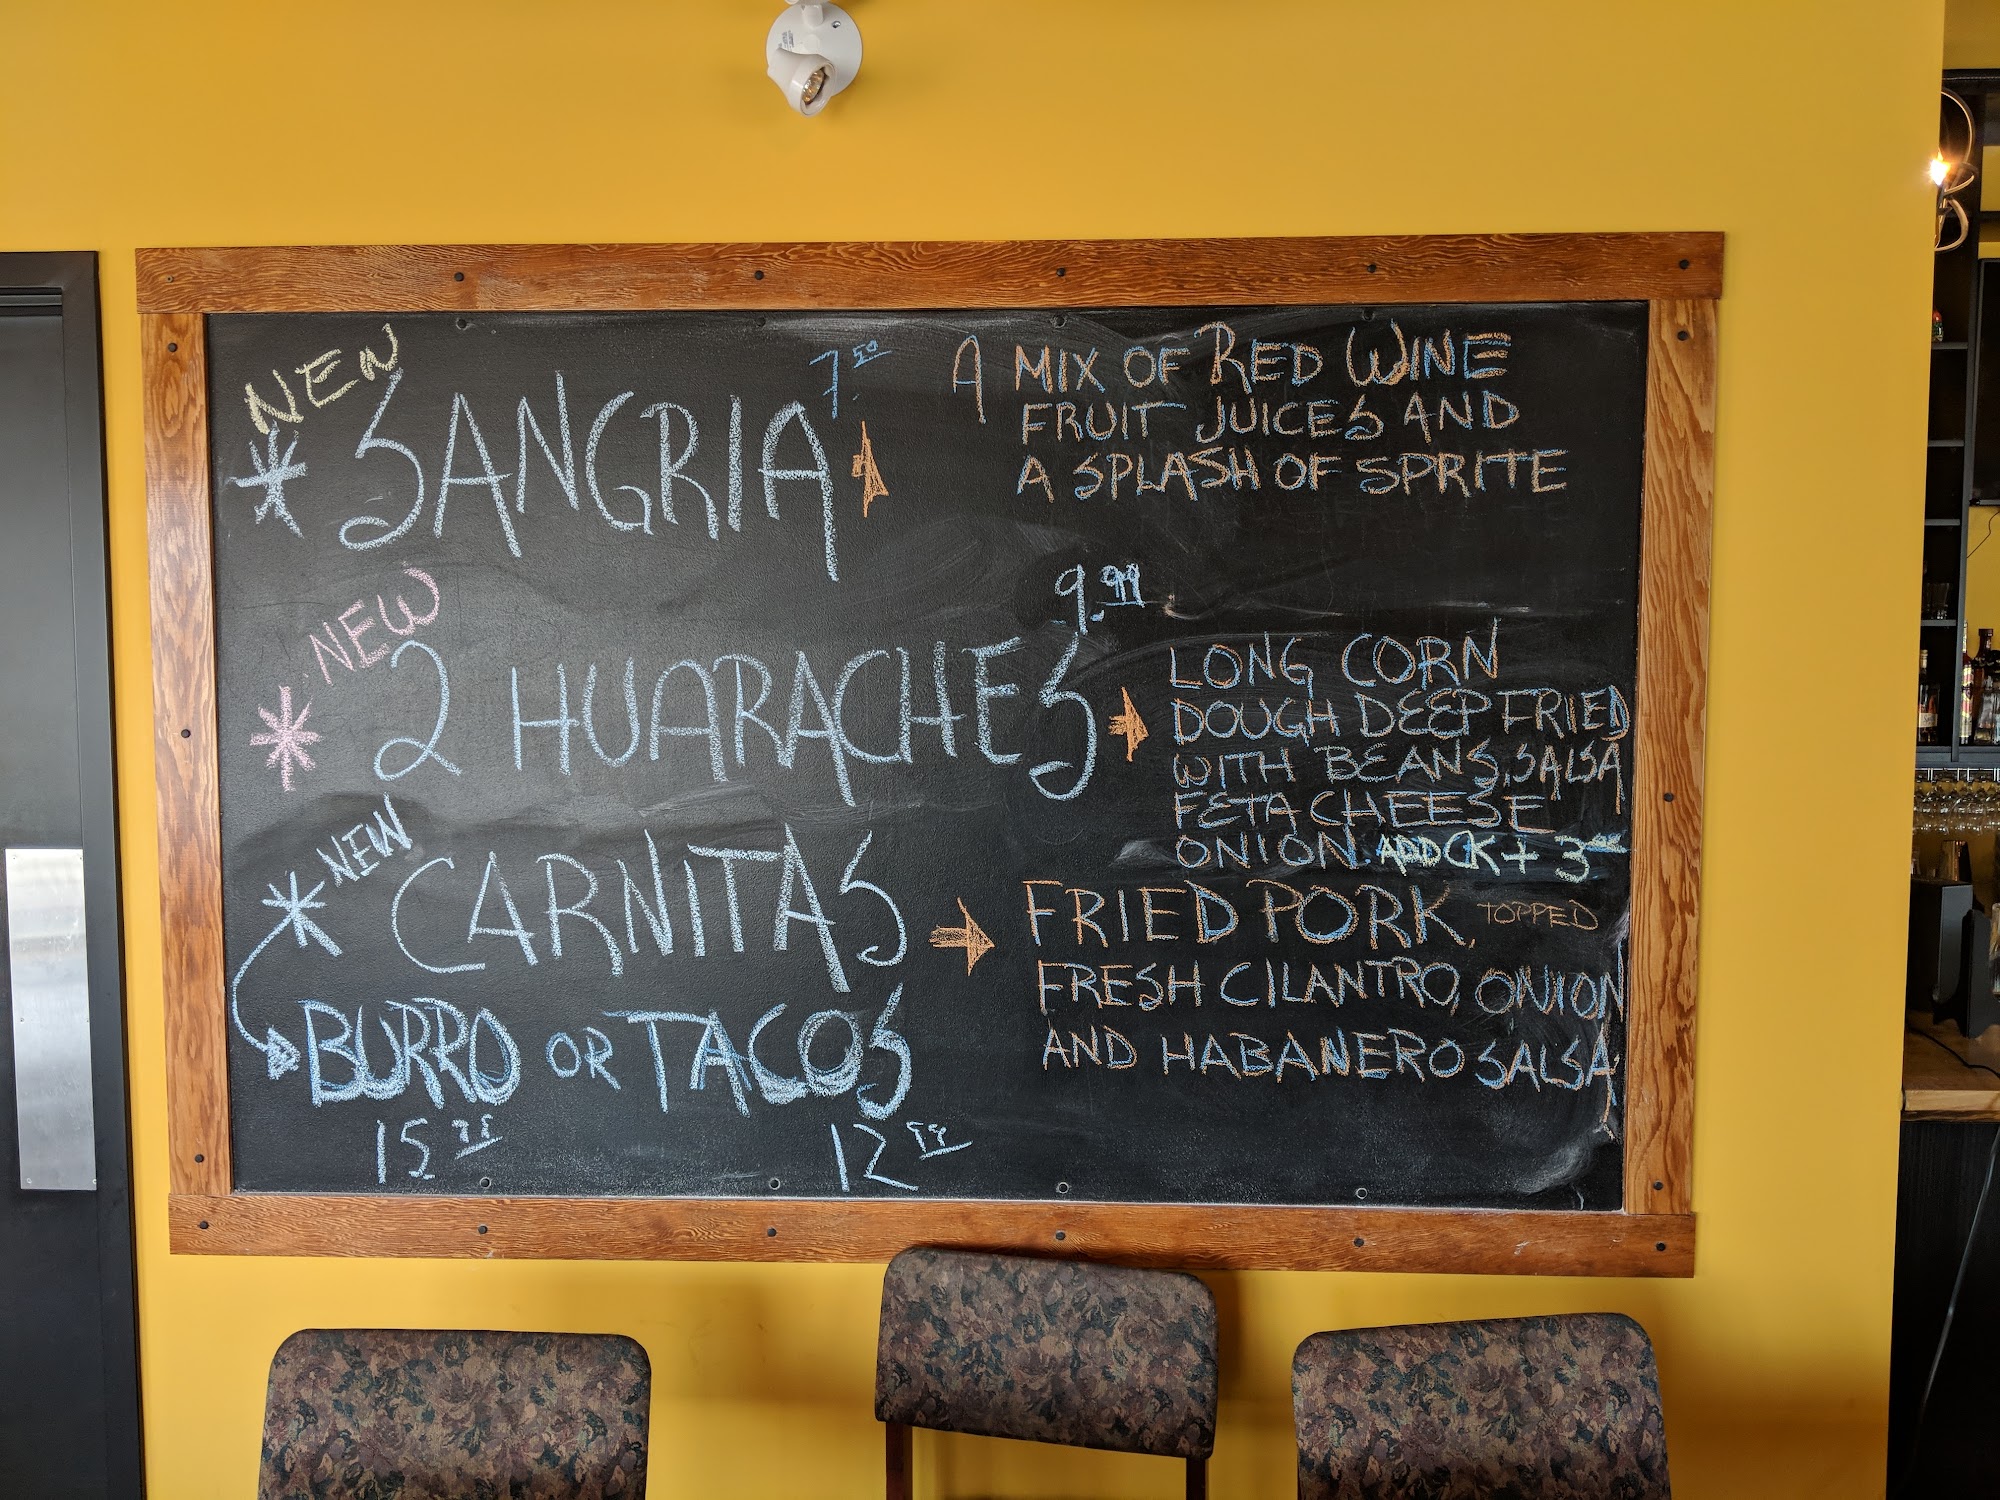 NEW
* SANGRIA 7.50
A MIX OF RED WINE
FRUIT JUICES AND
A SPLASH OF SPRITE
NEW
* 2 HUARACHES 9.99
LONG CORN
DOUGH DEEP FRIED
WITH BEANS, SALSA
FETA CHEESE
ONION. ADD CK + 3.00
* NEW
CARNITAS
BURRO OR TACOS
12.99
FRIED PORK, TOPPED
FRESH CILANTRO, ONION
AND HABANERO SALSA